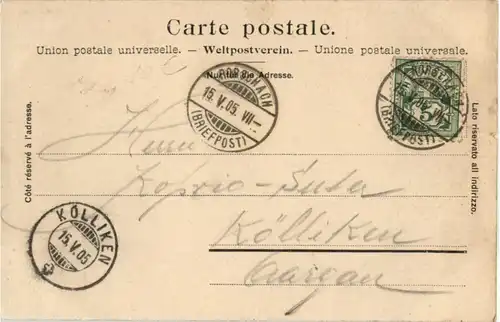 Carte postale.
Union postale universelle. — Weltpostverein. — Unione postale universale.
Nur für die Adresse.
RORSCHACH
15.V.05.VII—
(BRIEFPOST)
RORSCHACH
15.V.05.VII—
(BRIEFPOST)
5
Côté réservé à l'adresse.
Lato riservato all indirizzo.
Herrn
Suter
Kölliken
Aargau
KÖLLIKEN
15.V.05